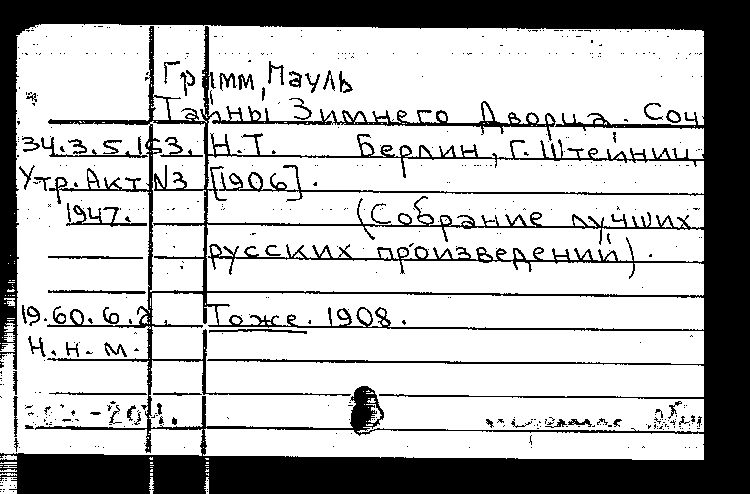 Гримм, Пауль
Тайны Зимнего Дворца. Соч.
34.3.5.163. Н.Т. Берлин, Г. Штейниц,
Утр. Акт N3 [1906].
1947. (Собрание лучших
русских произведений).
19.60.6.2. То же. 1908.
Н.н.м.